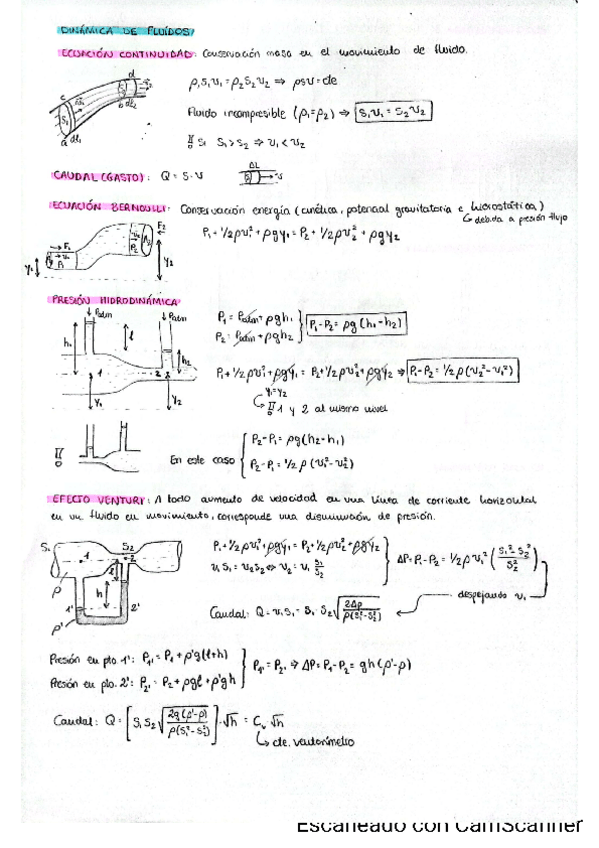 DINÁMICA DE FLUÍDOS:
ECUACIÓN CONTINUIDAD: Conservación masa en el movimiento de fluido.
ρ₁S₁v₁ = ρ₂S₂v₂ ⇒ ρSv = cte
Fluido incompresible (ρ₁=ρ₂) ⇒ S₁v₁ = S₂v₂
Si S₁ > S₂ ⇒ v₁ < v₂
CAUDAL (GASTO): Q = S·v
ΔL
ECUACIÓN BERNOULLI: Conservación energía (cinética, potencial gravitatoria e hidrostática)
↳ debida a presión flujo
P₁ + 1/2ρv₁² + ρgy₁ = P₂ + 1/2ρv₂² + ρgy₂
PRESIÓN HIDRODINÁMICA
P₁ = Patm + ρgh₁
P₂ = Patm + ρgh₂
P₁-P₂ = ρg(h₁-h₂)
P₁ + 1/2ρv₁² + ρgy₁ = P₂ + 1/2ρv₂² + ρgy₂ ⇒ P₁-P₂ = 1/2ρ(v₂²-v₁²)
y₁=y₂
1 y 2 al mismo nivel
En este caso
P₂-P₁ = ρg(h₂-h₁)
P₂-P₁ = 1/2ρ(v₁²-v₂²)
EFECTO VENTURI: A todo aumento de velocidad en una línea de corriente horizontal
en un fluido en movimiento, corresponde una disminución de presión.
P₁ + 1/2ρv₁² + ρgy₁ = P₂ + 1/2ρv₂² + ρgy₂
v₁S₁ = v₂S₂ ⇔ v₂ = v₁ S₁/S₂
ΔP = P₁-P₂ = 1/2ρv₁² (S₁²-S₂²/S₂²)
despejando v₁
Caudal: Q = v₁S₁ = S₁·S₂√(2Δp/ρ(S₁²-S₂²))
Presión en pto 1': P₁' = P₁ + ρ'g(l+h)
Presión en pto. 2': P₂' = P₂ + ρgl + ρ'gh
P₁' = P₂' ⇒ ΔP = P₁-P₂ = gh(ρ'-ρ)
Caudal: Q = [S₁S₂√(2g(ρ'-ρ)/ρ(S₁²-S₂²))]·√h = Cᵥ √h
↳ cte. venturímetro
Escaneado con CamScanner